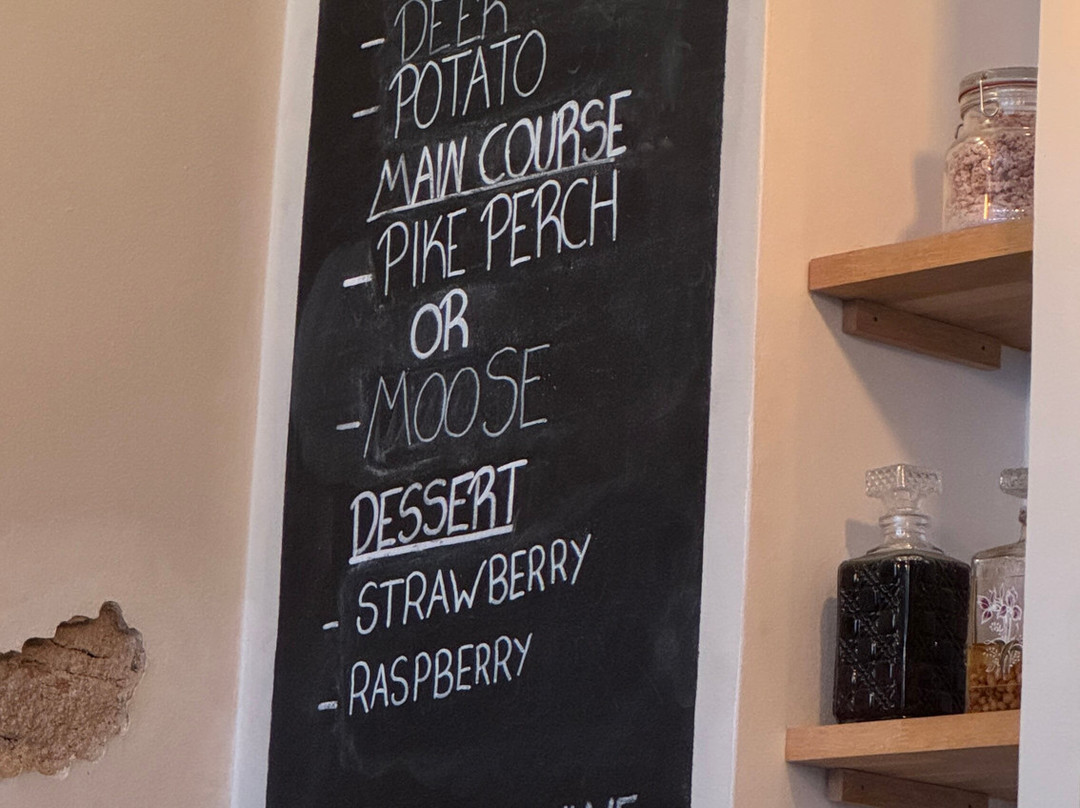 - DEER
- POTATO
MAIN COURSE
- PIKE PERCH
OR
- MOOSE
DESSERT
- STRAWBERRY
- RASPBERRY